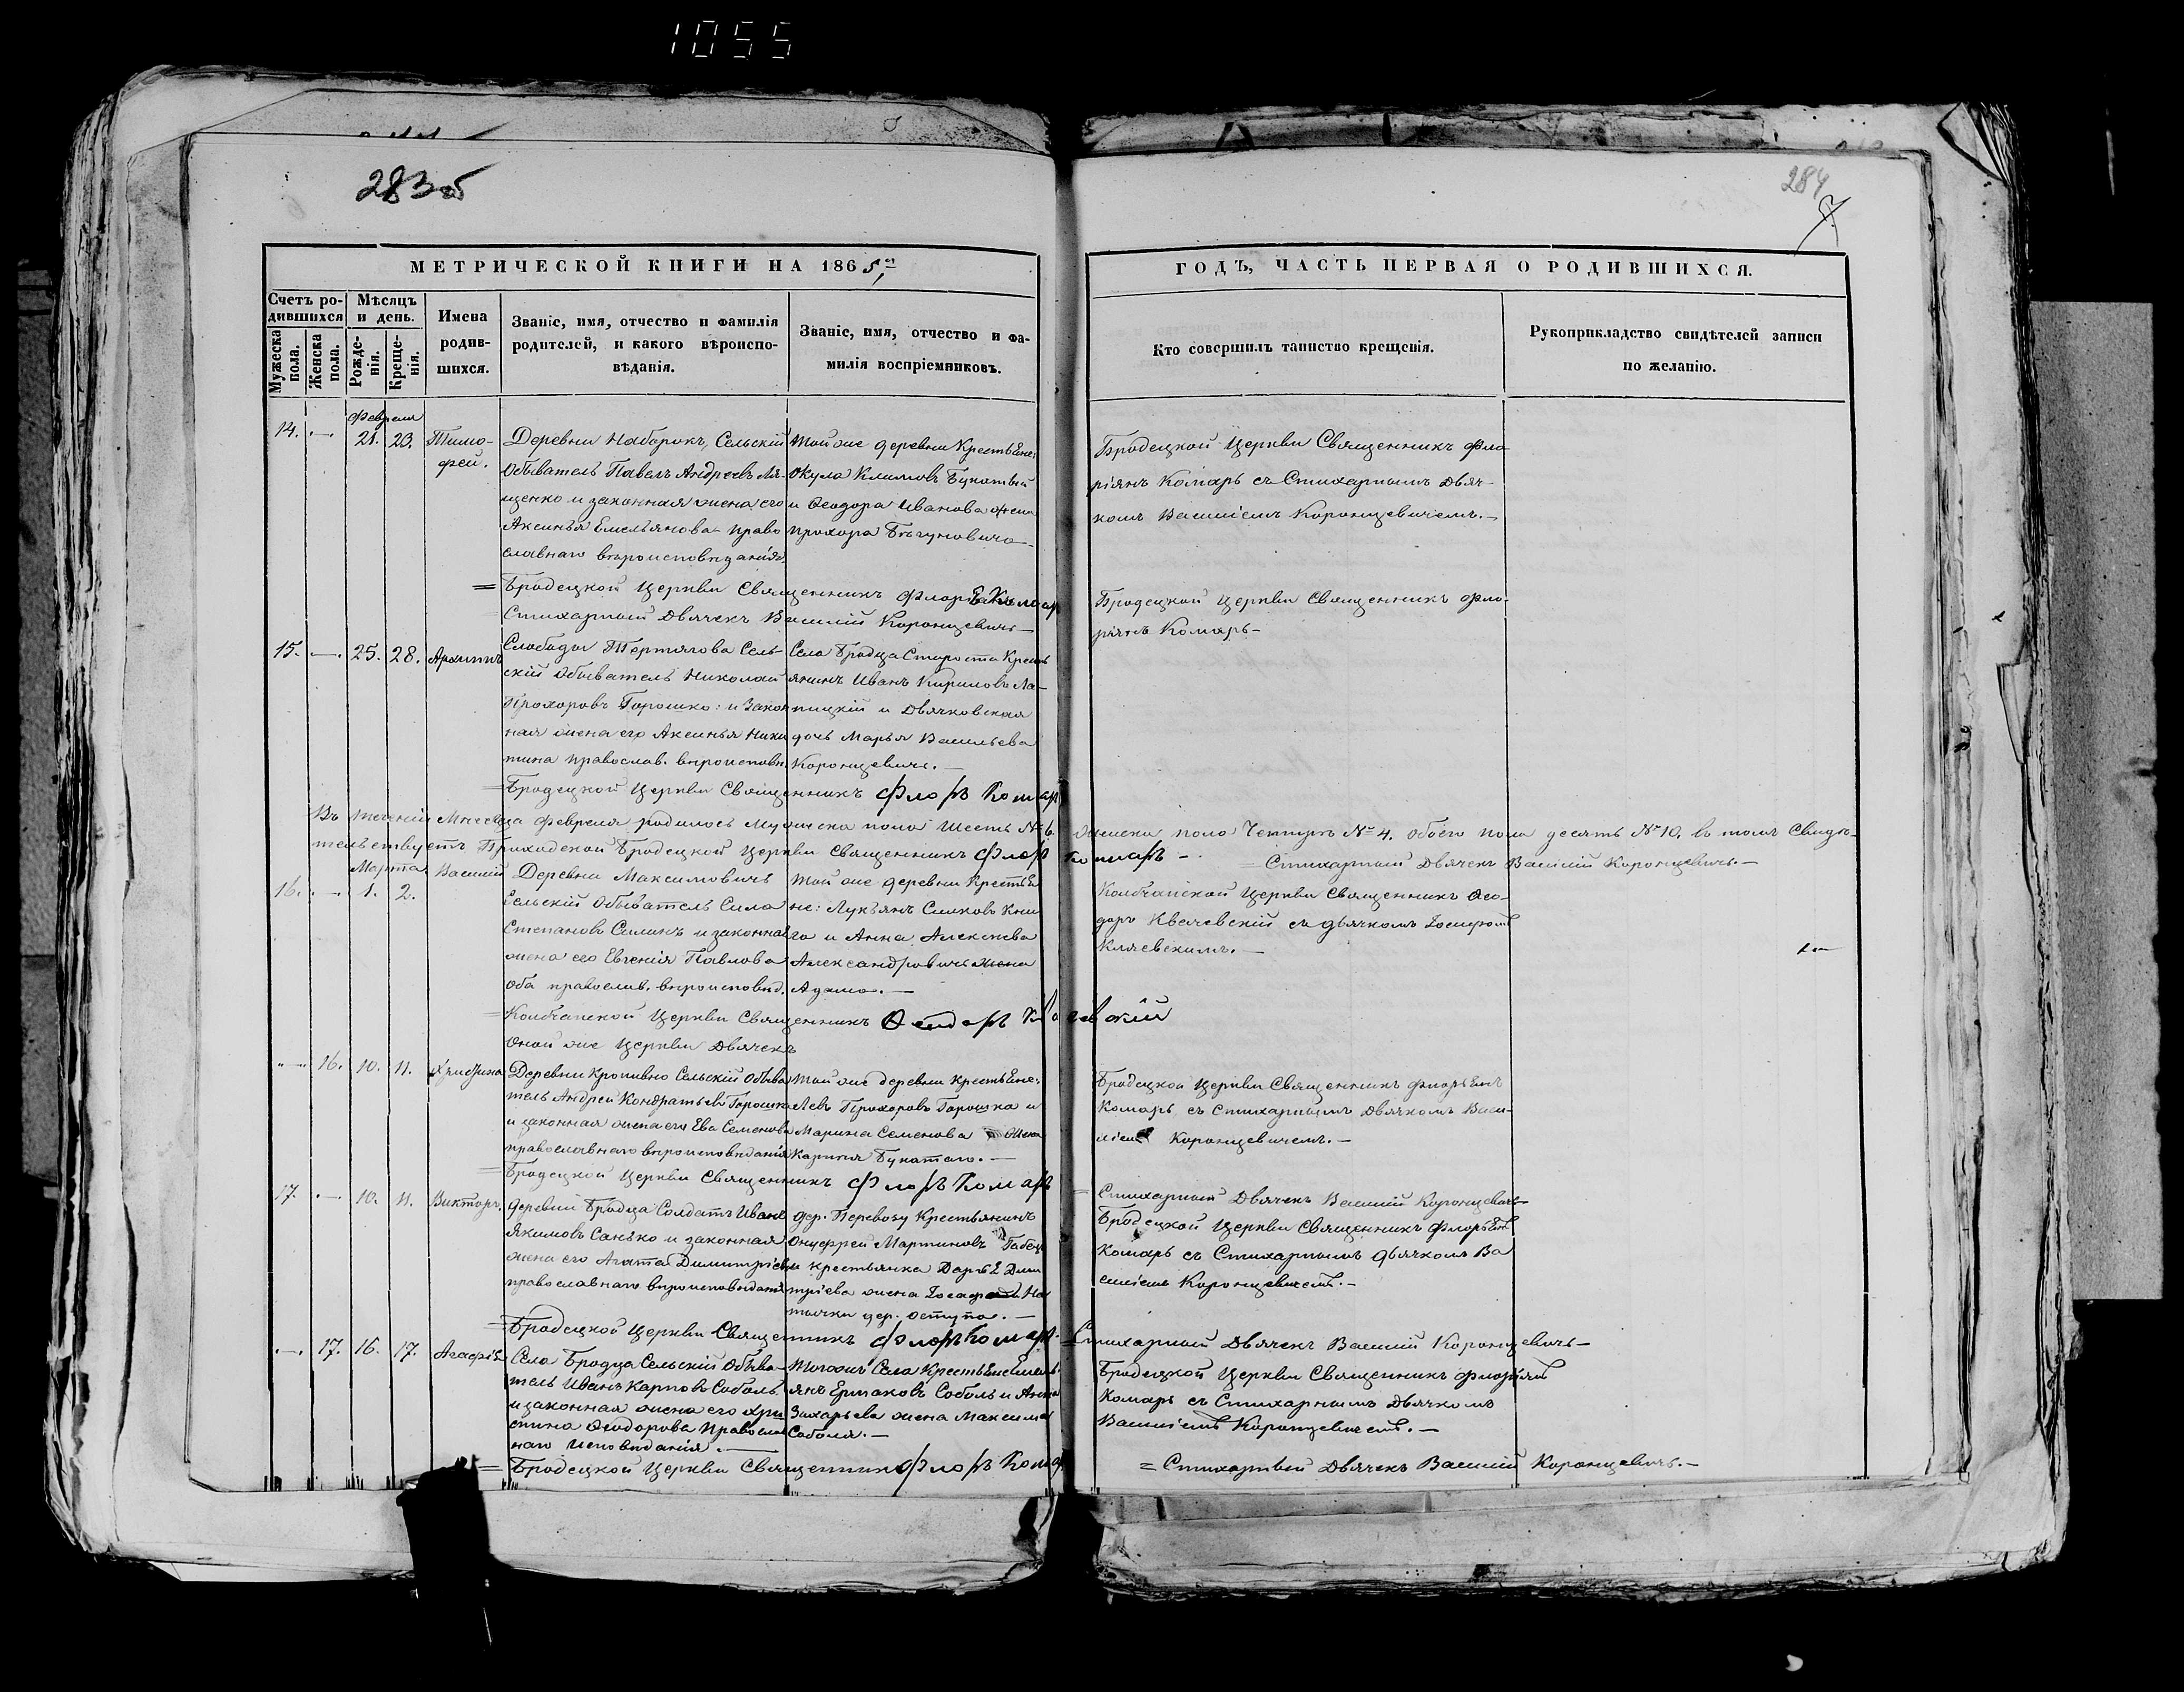 1055
283об
284
7
МЕТРИЧЕСКОЙ КНИГИ НА 1865й
ГОДЪ, ЧАСТЬ ПЕРВАЯ О РОДИВШИХСЯ.
Счетъ родившихся
Мужеска пола.
Женска пола.
Мѣсяцъ и день.
Рожденія.
Крещенія.
Имена родившихся.
Званіе, имя, отчество и фамилія
родителей, и какого вѣроиспо-
вѣданія.
Званіе, имя, отчество и фа-
милія воспріемниковъ.
Кто совершилъ таинство крещенія.
Рукоприкладство свидѣтелей записи
по желанію.
Февраля
14. — 21. 23. Тимо-
фей.
Деревни Наборокъ, Сельскій
Обыватель Павелъ Андреевъ Ля-
щенко и законная жена его
Аксинья Емельянова право
славнаго вѣроисповѣданія,
Той же деревни Крестьяне:
Окула Климовъ Букатый
и Ѳеодора Иванова жена
Прохора Бѣгуновича
Бродецкой Церкви Священникъ Фло
ріянъ Комаръ съ Стихарнымъ Дьяч-
комъ Василіемъ Коронцевичемъ.
= Бродецкой Церкви Священникъ Флоріянъ Комаръ
Стихарный Дьячекъ Василій Коронцевичъ
15. — 25. 28. Архипъ
Слободы Тертягова Сель-
скій Обыватель Николай
Прохоровъ Горошко: и закон
ная жена его Аксинья Ники
тина православ. вѣроисповѣ.
Села Бродца Староста Кресть
янинъ Иванъ Кириловъ Ла-
пицкій и Дьячковская
дочь Марья Васильева
Коронцевичъ.
Бродецкой Церкви Священникъ Фло-
ріянъ Комаръ
= Бродецкой Церкви Священникъ Флоръ Комаръ
Въ теченіи Мѣсяца Февраля родилось Мужеска пола Шесть №6. Женска пола Четыре №4. обоего пола десять №10. въ томъ Свидѣ-
тельствуетъ Приходской Бродецкой Церкви Священникъ Флоръ Комаръ
= Стихарный Дьячекъ Василій Коронцевичъ.
Марта
16. — 1. 2. Василій
Деревни Максимовичъ
Сельскій Обыватель Сила
Степановъ Силинъ и законная
жена его Евгенія Павлова
оба православ. вѣроисповѣд.
Той же деревни Крестья
не: Лукъянъ Силковъ Кни
га и Анна Алексѣева
Александровичъ жена
Адама.
Колбчанской Церкви Священникъ Ѳео-
доръ Квачевский съ дьячкомъ Іосифомъ
Кляевскимъ.
= Колбчанской Церкви Священникъ Ѳеодоръ Квачевский
Оной же Церкви Дьячекъ
— 16. 10. 11. Христина
Деревни Кропивно Сельскій Обыва
тель Андрей Кондратьевъ Горошко
и законная жена его Ева Семенова
православнаго вѣроисповѣданія
Той же деревни Крестьяне:
Левъ Прохоровъ Горошка и
Марина Семенова жена
Карпия Букатаго.
Бродецкой Церкви Священникъ Флоріянъ
Комаръ съ Стихарнымъ Дьячкомъ Васи-
ліемъ Коронцевичемъ.
= Бродецкой Церкви Священникъ Флоръ Комаръ
= Стихарный Дьячекъ Василій Коронцевичъ
17. — 10. 11. Викторъ.
деревни Бродца Солдатъ Иванъ
Якимовъ Санько и законная
жена его Агата Димитріева
православнаго вѣроисповѣданія
дер. Перевозу Крестьянинъ
Онуфрей Мартиновъ
и крестьянка Дарья Дми
тріева жена
дер. Оступа.
Бродецкой Церкви Священникъ Флоріянъ
Комаръ съ Стихарнымъ дьячкомъ Ва
силіемъ Коронцевичемъ.
= Бродецкой Церкви Священникъ Флоръ Комаръ
= Стихарный Дьячекъ Василій Коронцевичъ
— 17. 16. 17. Агафія
Села Бродца Сельскій Обыва-
тель Иванъ Карповъ Соболь
и законная жена его Хри
стина Ѳеодорова Православ
наго Исповѣданія.
Тогожъ Села Крестьяне Емель
янъ Ермаковъ Соболь и Анна
Захарьева жена Максима
Соболя.
Бродецкой Церкви Священникъ Флоріянъ
Комаръ съ Стихарнымъ Дьячкомъ
Василіемъ Коронцевичемъ.
= Бродецкой Церкви Священникъ Флоръ Комаръ
= Стихарный Дьячекъ Василій Коронцевичъ.